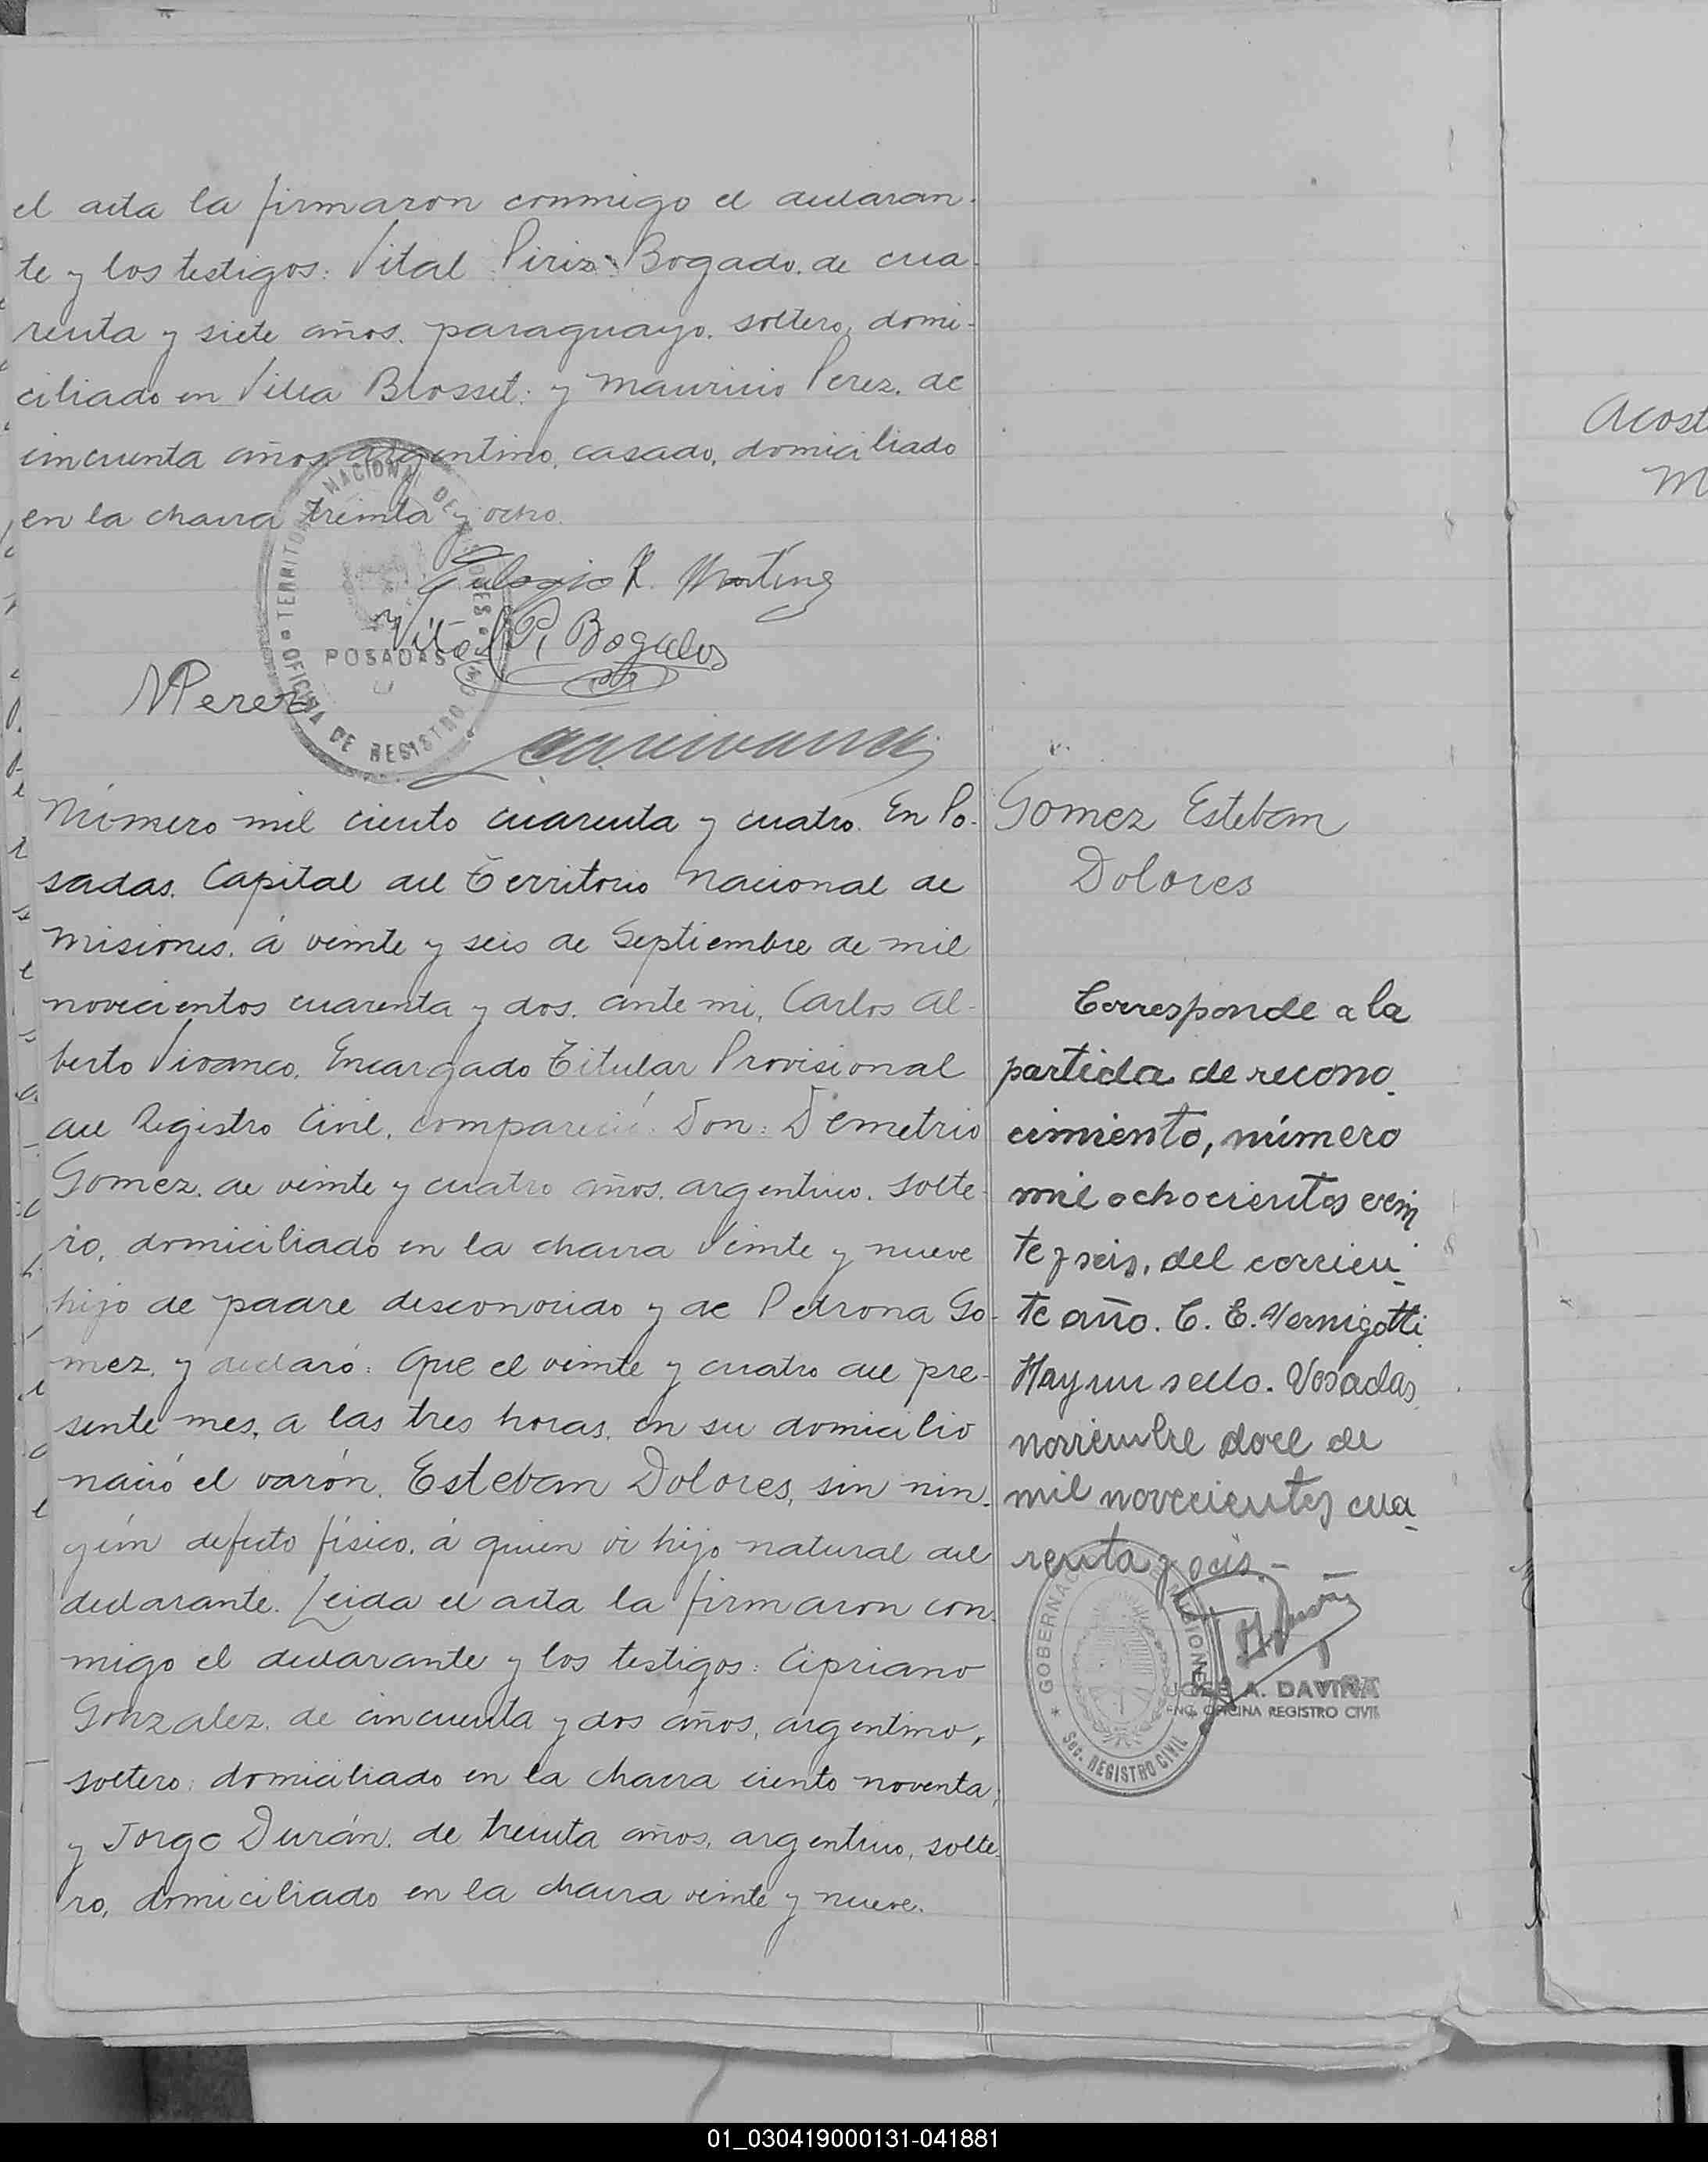 el acta la firmaron conmigo el declaran-
te y los testigos: Vital Piriz Bogado, de cua-
renta y siete años, paraguayo, soltero, domi-
ciliado en Villa Blosset; y Mauricio Perez, de
cincuenta años, argentino, casado, domiciliado
en la chacra treinta y ocho.
TERRITORIO NACIONAL DE MISIONES
OFICINA DE REGISTRO CIVIL
POSADAS
Eulogio R. Martinez
Vital P. Bogado
MPerez
Número mil ciento cuarenta y cuatro. En Po-
sadas, Capital del Territorio Nacional de
Misiones, á veinte y seis de Septiembre de mil
novecientos cuarenta y dos, ante mi, Carlos Al-
berto Vivanco, Encargado Titular Provisional
del Registro Civil, compareció: Don: Demetrio
Gomez, de veinte y cuatro años, argentino, solte-
ro, domiciliado en la chacra Veinte y nueve
hijo de padre desconocido y de Petrona Go-
mez, y declaró: Que el veinte y cuatro del pre-
sente mes, a las tres horas, en su domicilio
nació el varón, Esteban Dolores, sin nin-
gún defecto físico, á quien vi hijo natural del
declarante. Leida el acta la firmaron con-
migo el declarante y los testigos: Cipriano
Gonzalez, de cincuenta y dos años, argentino,
soltero, domiciliado en la chacra ciento noventa;
y Jorge Durán, de treinta años, argentino, solte-
ro, domiciliado en la chacra veinte y nueve.
Gomez Esteban
Dolores
Corresponde a la
partida de recono-
cimiento, número
mil ochocientos vein
te y seis, del corrien-
te año. C. E. Vernigotti.
Hay un sello. Posadas,
noviembre doce de
mil novecientos cua-
renta y seis.-
GOBERNACION DE MISIONES
SEC. REGISTRO CIVIL
JOSE A. DAVIÑA
ENC. OFICINA REGISTRO CIVIL
Acost
M
01_030419000131-041881